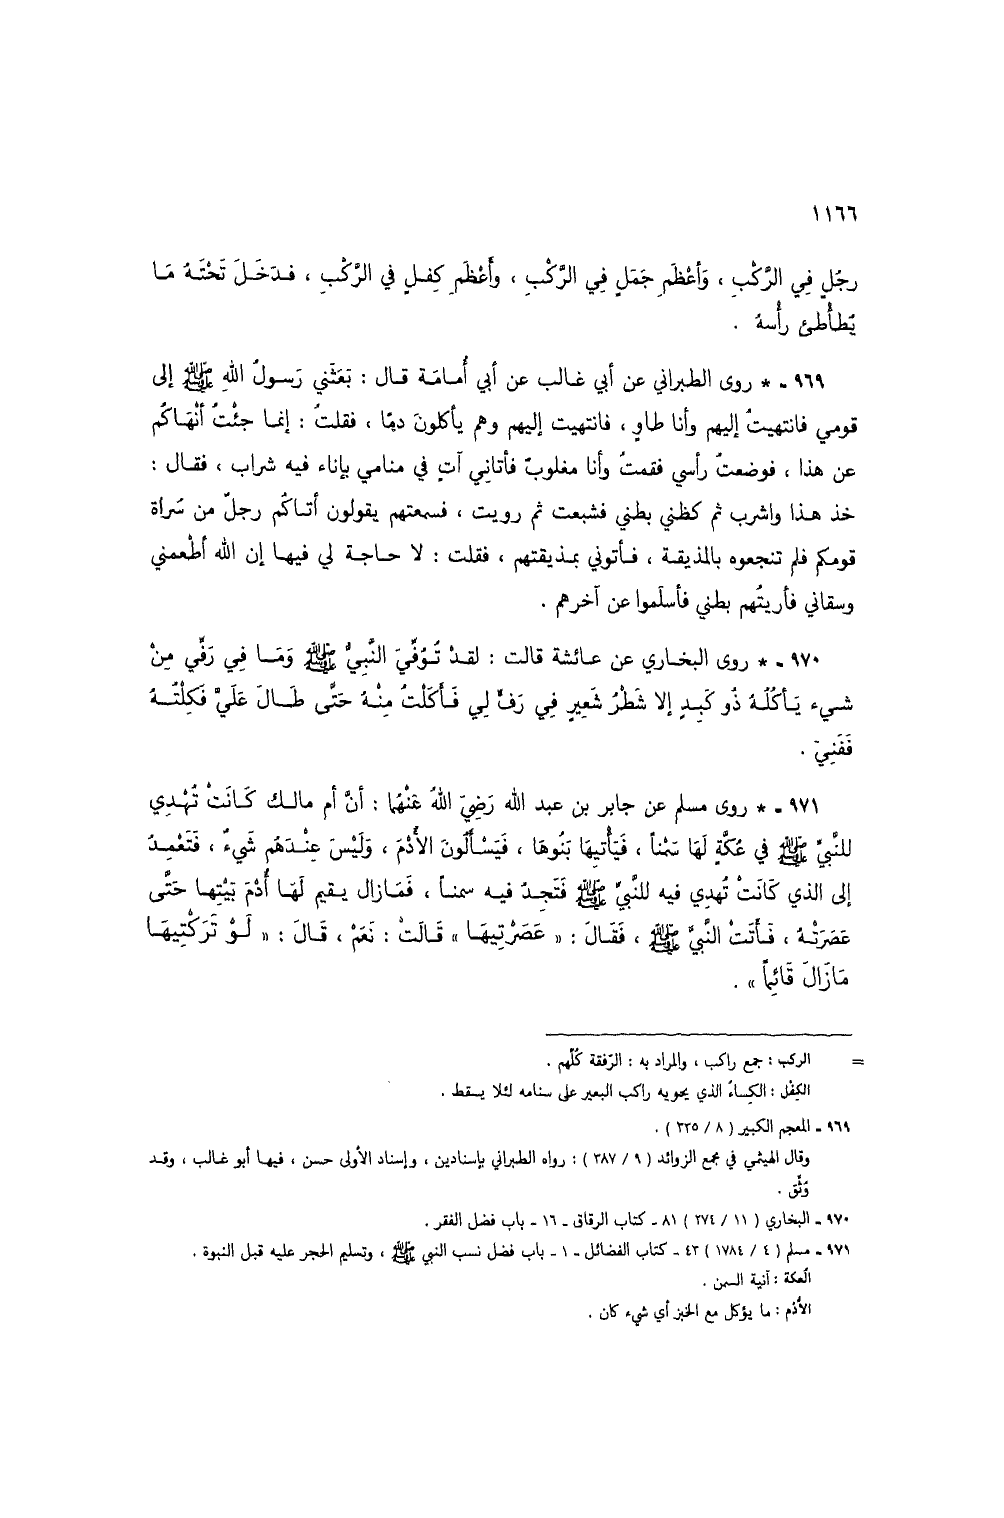 ١١٦٦
رجُلٍ فِي الرَّكْبِ ، وَأعْظَمِ جَمَلٍ فِي الرَّكْبِ ، وأَعْظَمِ كِفلٍ في الرَّكْبِ ، فدَخَلَ تَحْتَهُ مَا
يُطأْطئ رأْسهُ .
٩٦٩ - * روى الطبراني عن أبي غالب عن أبي أُمامَة قال : بَعَثَني رَسولُ اللهِ ﷺ إلى
قومي فانتهيتُ إليهم وأنا طاوٍ ، فانتهيت إليهم وهم يأكلونَ دمًا ، فقلتُ : إنما جئْتُ أنْهَاكُم
عن هذا ، فوضعتُ رأسي فقمتُ وأنا مغلوبٌ فأتاني آتٍ في منامي بإناء فيه شراب ، فقال :
خذ هذا واشرب ثم كظني بطني فشبعت ثم رويت ، فسمعتهم يقولون أتاكُم رجلٌ من سُراة
قومكم فلم تنجعوه بالمذيقة ، فأتوني بمذيقتهم ، فقلت : لا حاجة لي فيها إن الله أطْعمني
وسقاني فأريتُهم بطني فأسلَموا عن آخرهم .
٩٧٠ - * روى البخاري عن عائشة قالت : لقدْ تُوُفِّيَ النَّبيُّ ﷺ وَمَا فِي رَفِّي مِنْ
شيء يَأكُلُهُ ذُو كَبِدٍ إلا شَطْرُ شَعِيرٍ فِي رَفٍّ لِي فَأَكَلْتُ مِنْهُ حَتَّى طَالَ عَلَيَّ فَكِلْتُهُ
فَفَنِيَ .
٩٧١ - * روى مسلم عن جابر بن عبد الله رَضِيَ اللهُ عَنْهُما : أنَّ أم مالك كَانَتْ تُهْدِي
للنَّبيِّ ﷺ في عُكَّةٍ لَهَا سَمْناً ، فَيَأْتِيهَا بَنُوهَا ، فَيَسْألُونَ الأدْمَ ، وَلَيْسَ عِنْدَهُم شَيءٌ ، فَتَعْمِدُ
إلى الذي كَانَتْ تُهدِي فيه للنَّبيِّ ﷺ فَتَجِدُ فيه سمناً ، فَمَازال يقيم لَهَا أُدْمَ بَيْتِها حَتَّى
عَصَرَتْهُ ، فَأَتَتْ النَّبيَّ ﷺ ، فَقَالَ : « عَصَرْتِيهَا » قَالَتْ : نَعَمْ ، قَالَ : « لَوْ تَرَكْتِيهَا
مَازَالَ قَائِماً » .
= الركب : جمع راكب ، والمراد به : الرّفقة كُلّهم .
الكِفْل : الكِساءُ الذي يحويه راكب البعير على سنامه لئلا يسقط .
٩٦٩ - المعجم الكبير ( ٨ / ٣٣٥ ) .
وقال الهيثمي في مجمع الزوائد ( ٩ / ٣٨٧ ) : رواه الطبراني بإسنادين ، وإسناد الأولى حسن ، فيها أبو غالب ، وقد
وُثِّق .
٩٧٠ - البخاري ( ١١ / ٢٧٤ ) ٨١ - كتاب الرقاق - ١٦ - باب فضل الفقر .
٩٧١ - مسلم ( ٤ / ١٧٨٤ ) ٤٣ - كتاب الفضائل - ١ - باب فضل نسب النبي ﷺ ، وتسليم الحجر عليه قبل النبوة .
العكة : آنية السمن .
الأُدْم : ما يؤكل مع الخبز أي شيء كان .